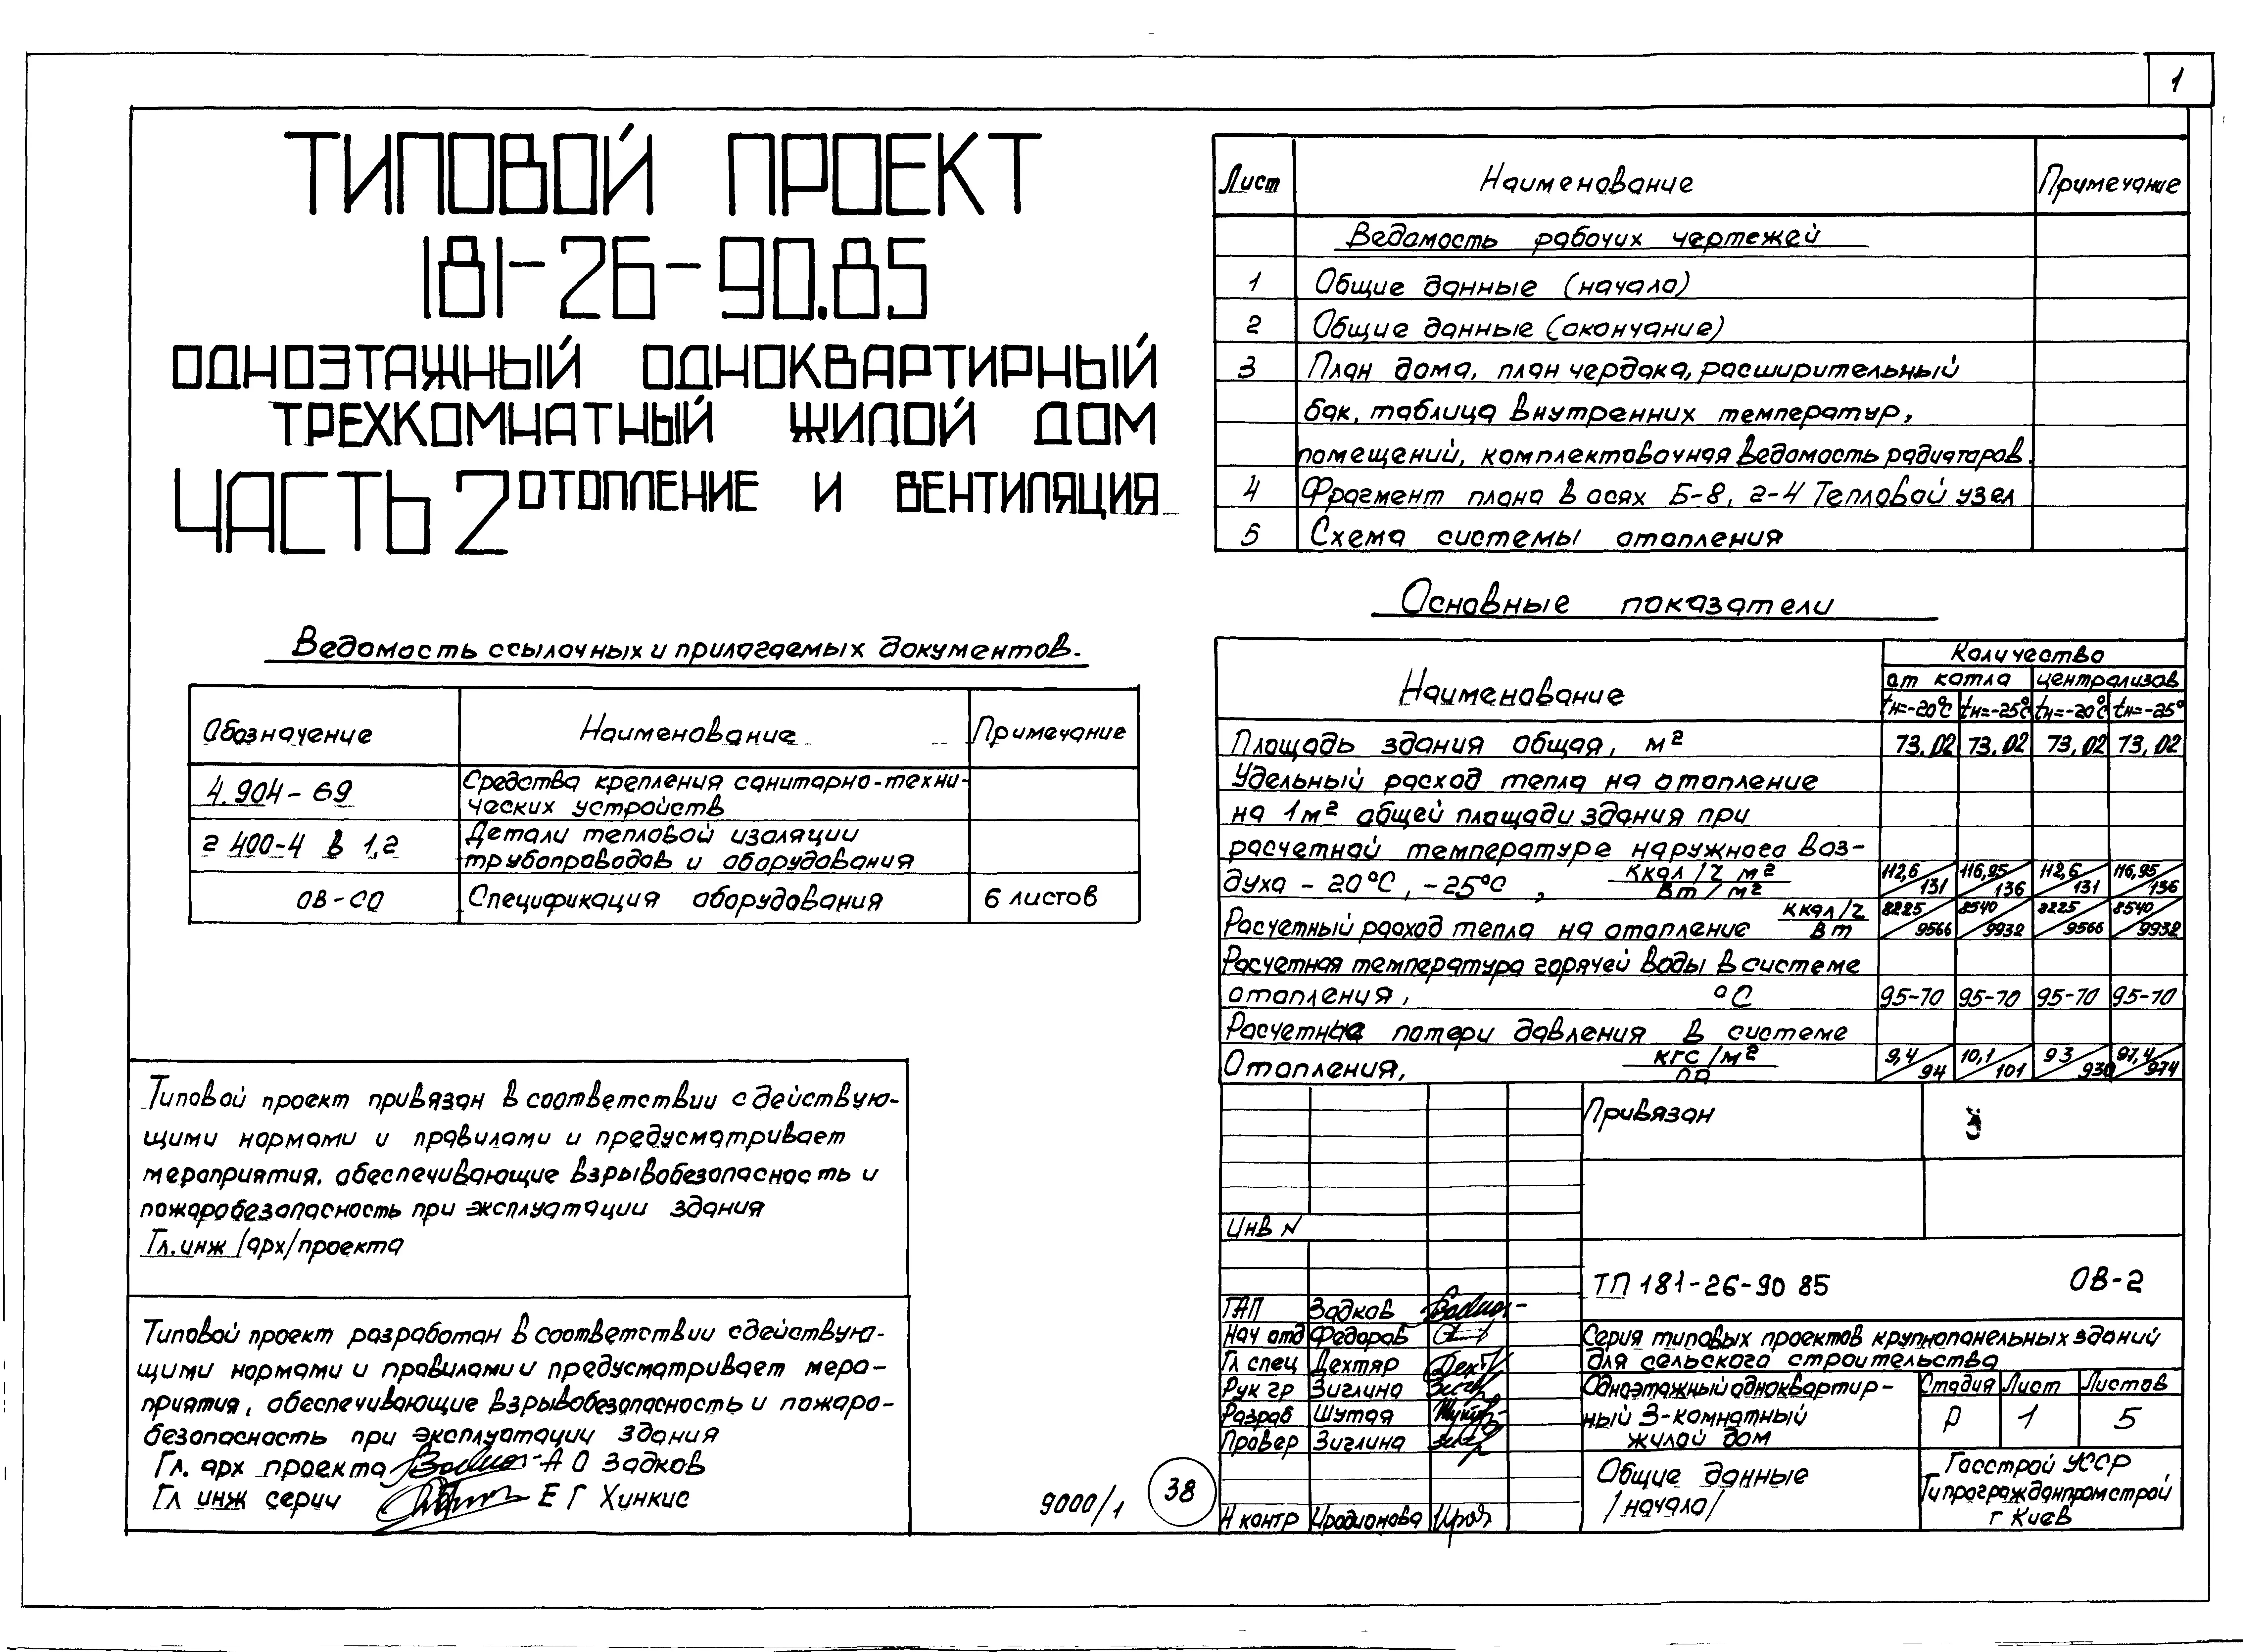 1
ТИПОВОЙ ПРОЕКТ
181-26-90.85
ОДНОЭТАЖНЫЙ ОДНОКВАРТИРНЫЙ
ТРЕХКОМНАТНЫЙ ЖИЛОЙ ДОМ
ЧАСТЬ 2 ОТОПЛЕНИЕ И ВЕНТИЛЯЦИЯ
Ведомость ссылочных и прилагаемых документов.
Обозначение Наименование Примечание
4.904-69 Средства крепления санитарно-техни-
ческих устройств
г 400-4 в 1,2 Детали тепловой изоляции
трубопроводов и оборудования
ОВ-СО Спецификация оборудования 6 листов
Типовой проект привязан в соответствии с действую-
щими нормами и правилами и предусматривает
мероприятия, обеспечивающие взрывобезопасность и
пожаробезопасность при эксплуатации здания
Гл.инж /арх/ проекта
Типовой проект разработан в соответствии с действую-
щими нормами и правилами и предусматривает меро-
приятия, обеспечивающие взрывобезопасность и пожаро-
безопасность при эксплуатации здания
Гл. арх проекта А О Задков
Гл инж серии Е Г Хинкис
9000/1
38
Лист Наименование Примечание
Ведомость рабочих чертежей
1 Общие данные (начало)
2 Общие данные (окончание)
3 План дома, план чердака, расширительный
бак, таблица внутренних температур,
помещений, комплектовочная ведомость радиаторов.
4 Фрагмент плана в осях Б-В, 2-4 Тепловой узел
5 Схема системы отопления
Основные показатели
Наименование Количество
от котла централизов
tн=-20°С tн=-25°С tн=-20°С tн=-25°
Площадь здания общая, м² 73,02 73,02 73,02 73,02
Удельный расход тепла на отопление
на 1м² общей площади здания при
расчетной температуре наружного воз-
духа -20°С, -25°С, ккал/ч м² / Вт/м² 112,6/131 116,95/136 112,6/131 116,95/136
Расчетный расход тепла на отопление ккал/ч / Вт 8225/9566 8540/9932 8225/9566 8540/9932
Расчетная температура горячей воды в системе
отопления, °С 95-70 95-70 95-70 95-70
Расчетные потери давления в системе
Отопления, кгс/м² / па 9,4/94 10,1/101 93/930 97,4/974
Привязан
Инв N
ТП 181-26-90 85 ОВ-2
ГАП Задков
Нач отд Федоров
Гл спец Дехтяр
Рук гр Зиглина
Разраб Шутая
Провер Зиглина
Н контр Иродионова
Серия типовых проектов крупнопанельных зданий
для сельского строительства
Одноэтажный одноквартир-
ный 3-комнатный
жилой дом
Стадия Лист Листов
Р 1 5
Общие данные
/начало/
Госстрой УССР
Гипрогражданпромстрой
г Киев